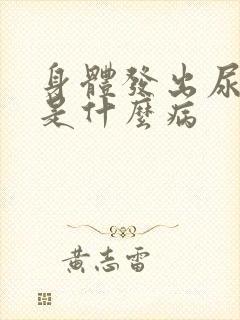 身體發出尿
是什麼病
黃志雷